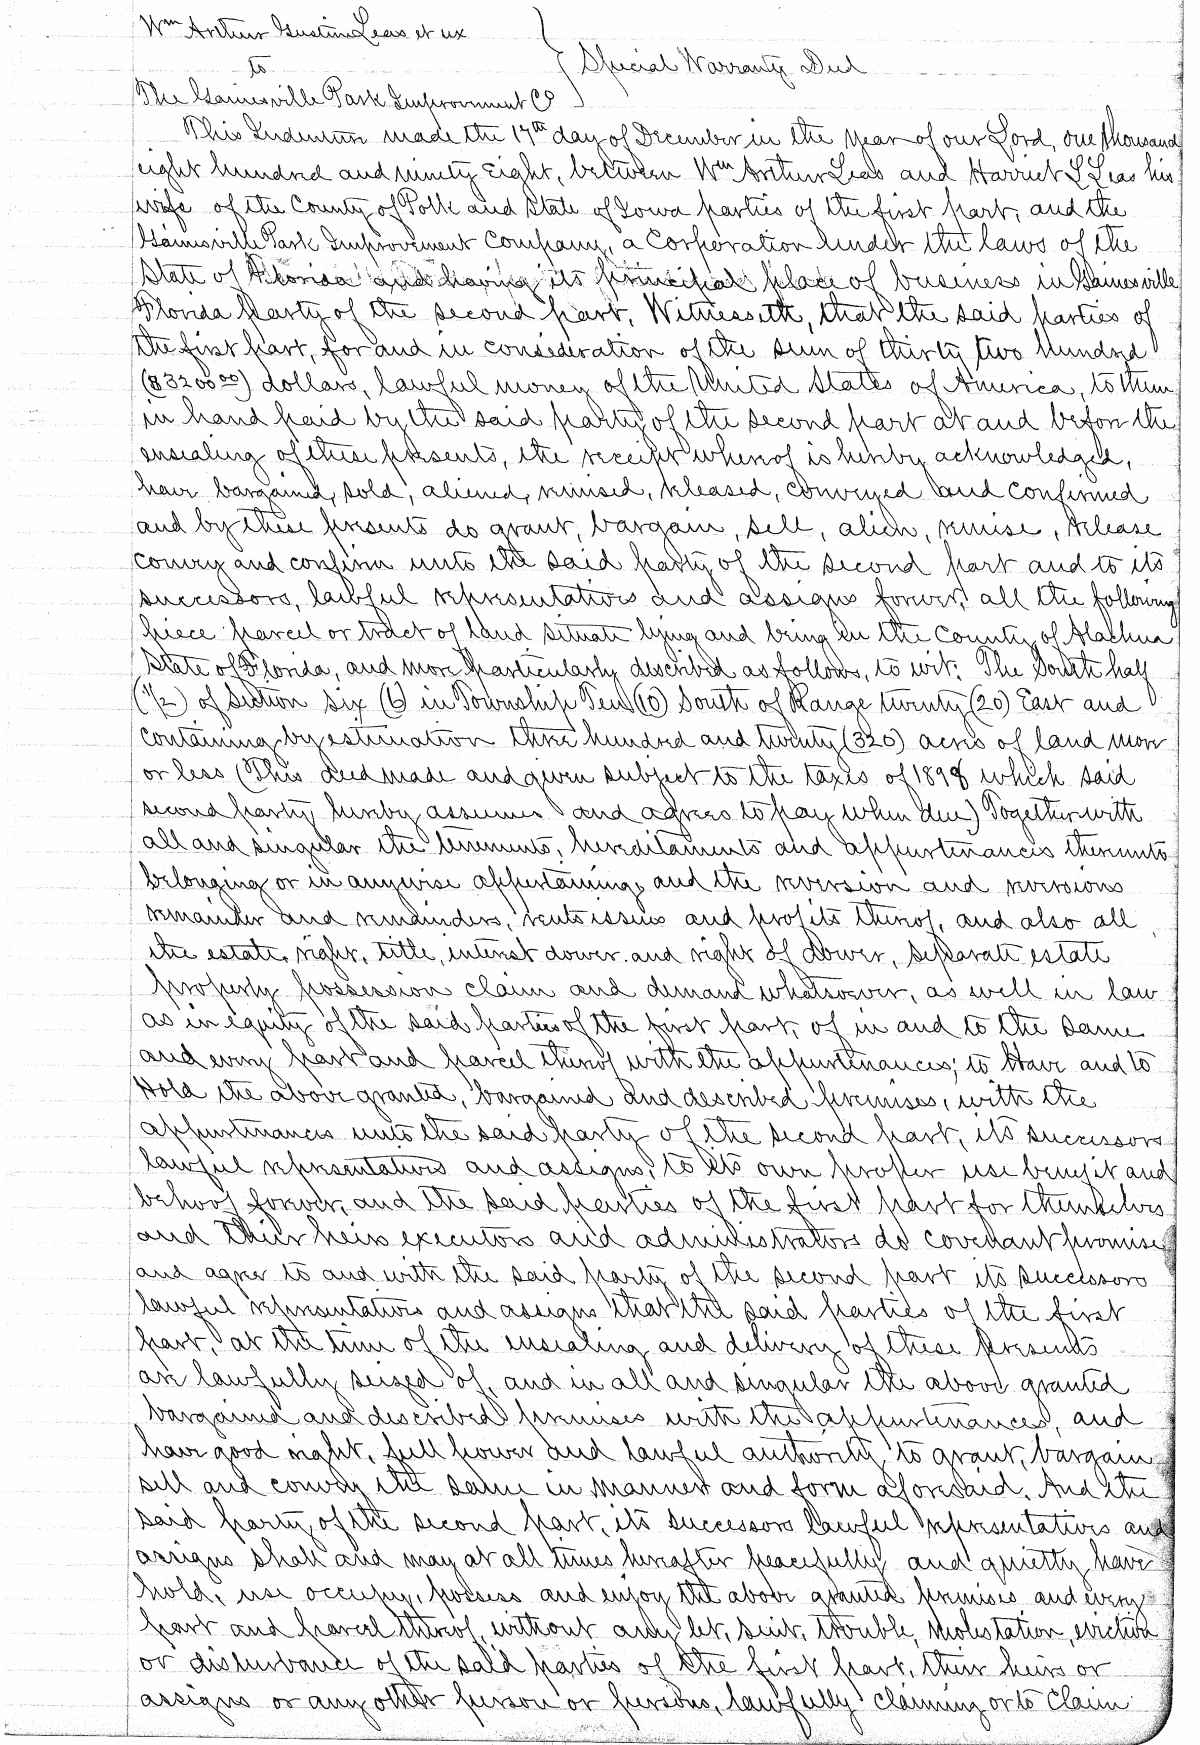 Wm Arthur Gustin Leas et ux
to
Special Warranty Deed
The Gainesville Park Improvement Co
This Indenture made the 17th day of December in the year of our Lord, one thousand
eight hundred and ninety eight, between Wm Arthur Leas and Harriet L Leas his
wife of the County of Polk and State of Iowa parties of the first part, and the
Gainesville Park Improvement Company, a Corporation under the laws of the
State of Florida and having its principal place of business in Gainesville
Florida party of the second part, Witnesseth, that the said parties of
the first part, for and in consideration of the sum of thirty two hundred
($3200 00) dollars, lawful money of the United States of America, to them
in hand paid by the said party of the second part at and before the
ensealing of these presents, the receipt whereof is hereby acknowledged,
have bargained, sold, aliened, remised, released, conveyed and confirmed
and by these presents do grant, bargain, sell, alien, remise, release
convey and confirm unto the said party of the second part and to its
successors, lawful representatives and assigns forever, all the following
piece parcel or tract of land situate lying and being in the County of Alachua
State of Florida, and more particularly described as follows, to wit: The South half
(1/2) of Section six (6) in Township Ten (10) South of Range twenty (20) East and
containing by estimation three hundred and twenty (320) acres of land more
or less (This deed made and given subject to the taxes of 1898 which said
second party hereby assumes and agrees to pay when due) Together with
all and singular the tenements, hereditaments and appurtenances thereunto
belonging or in anywise appertaining, and the reversion and reversions
remainder and remainders, rents issues and profits thereof, and also all
the estate, right, title, interest dower and right of dower, separate estate
property possession claim and demand whatsoever, as well in law
as in equity of the said parties of the first part, of in and to the same
and every part and parcel thereof with the appurtenances; to Have and to
Hold the above granted, bargained and described premises, with the
appurtenances unto the said party of the second part, its successors
lawful representatives and assigns, to its own proper use benefit and
behoof forever, and the said parties of the first part for themselves
and their heirs executors and administrators do covenant promise
and agree to and with the said party of the second part its successors
lawful representatives and assigns that the said parties of the first
part, at the time of the ensealing and delivery of these presents
are lawfully seized of, and in all and singular the above granted
bargained and described premises with the appurtenances, and
have good right, full power and lawful authority to grant, bargain
sell and convey the same in manner and form aforesaid. And the
said party of the second part, its successors lawful representatives and
assigns shall and may at all times hereafter peacefully and quietly have
hold, use occupy, possess and enjoy the above granted premises and every
part and parcel thereof, without any let, suit, trouble, molestation, eviction
or disturbance of the said parties of the first part, their heirs or
assigns or any other person or persons, lawfully claiming or to claim